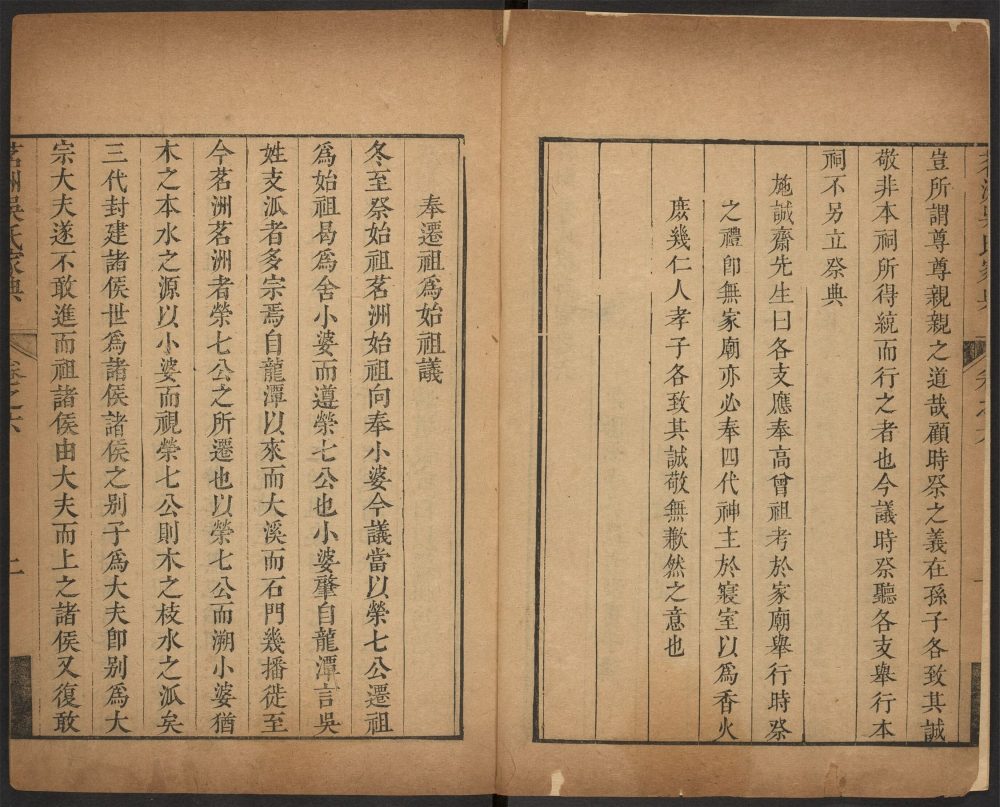 豈所謂尊尊親親之道哉顧時祭之義在孫子各致其誠
敬非本祠所得統而行之者也今議時祭聽各支舉行本
祠不另立祭典
施誠齋先生曰各支應奉高曾祖考於家廟舉行時祭
之禮卽無家廟亦必奉四代神主於寢室以爲香火
庶幾仁人孝子各致其誠敬無歉然之意也
奉遷祖爲始祖議
冬至祭始祖茗洲始祖向奉小婆今議當以榮七公遷祖
爲始祖曷爲舍小婆而遵榮七公也小婆肇自龍潭言吳
姓支泒者多宗焉自龍潭以來而大溪而石門幾播徙至
今茗洲茗洲者榮七公之所遷也以榮七公而溯小婆猶
木之本水之源以小婆而視榮七公則木之枝水之泒矣
三代封建諸侯世爲諸侯諸侯之别子爲大夫卽别爲大
宗大夫遂不敢進而祖諸侯由大夫而上之諸侯又復敢
茗洲吳氏家典
卷之六
二